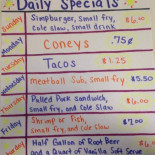 Daily Specials
Sunday
Simpburger, small fry,
cole slaw, small drink
$6.00
Monday
Coneys
.75¢
Tuesday
Tacos
$1.25
Wednesday
Meatball Sub, small fry
$5.50
Thursday
Pulled Pork Sandwich,
small fry, and cole slaw
$6.00
Friday
Shrimp or Fish,
small fry, and cole slaw
$7.00
Half Gallon of Root Beer
and a Quart of Vanilla Soft Serve